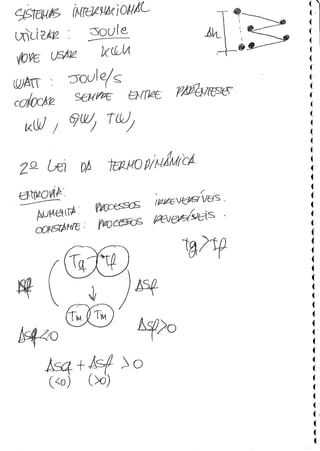 SISTEMAS INTERNACIONAL
UTILIZAR: JOULE
PODE USAR kWh
Δh
WATT: JOULE/S
COLOCAR SEMPRE ENTRE PARÊNTESES
kW, GW, TW,
2º LEI DA TERMODINÂMICA
ENTROPIA:
AUMENTA: PROCESSOS IRREVERSÍVEIS.
CONSTANTE: PROCESSOS REVERSÍVEIS.
Tq > Tf
Tq Tf
ΔSf
Tm Tm
ΔSq<0 ΔSf>0
ΔSq + ΔSf > 0
(<0) (>0)